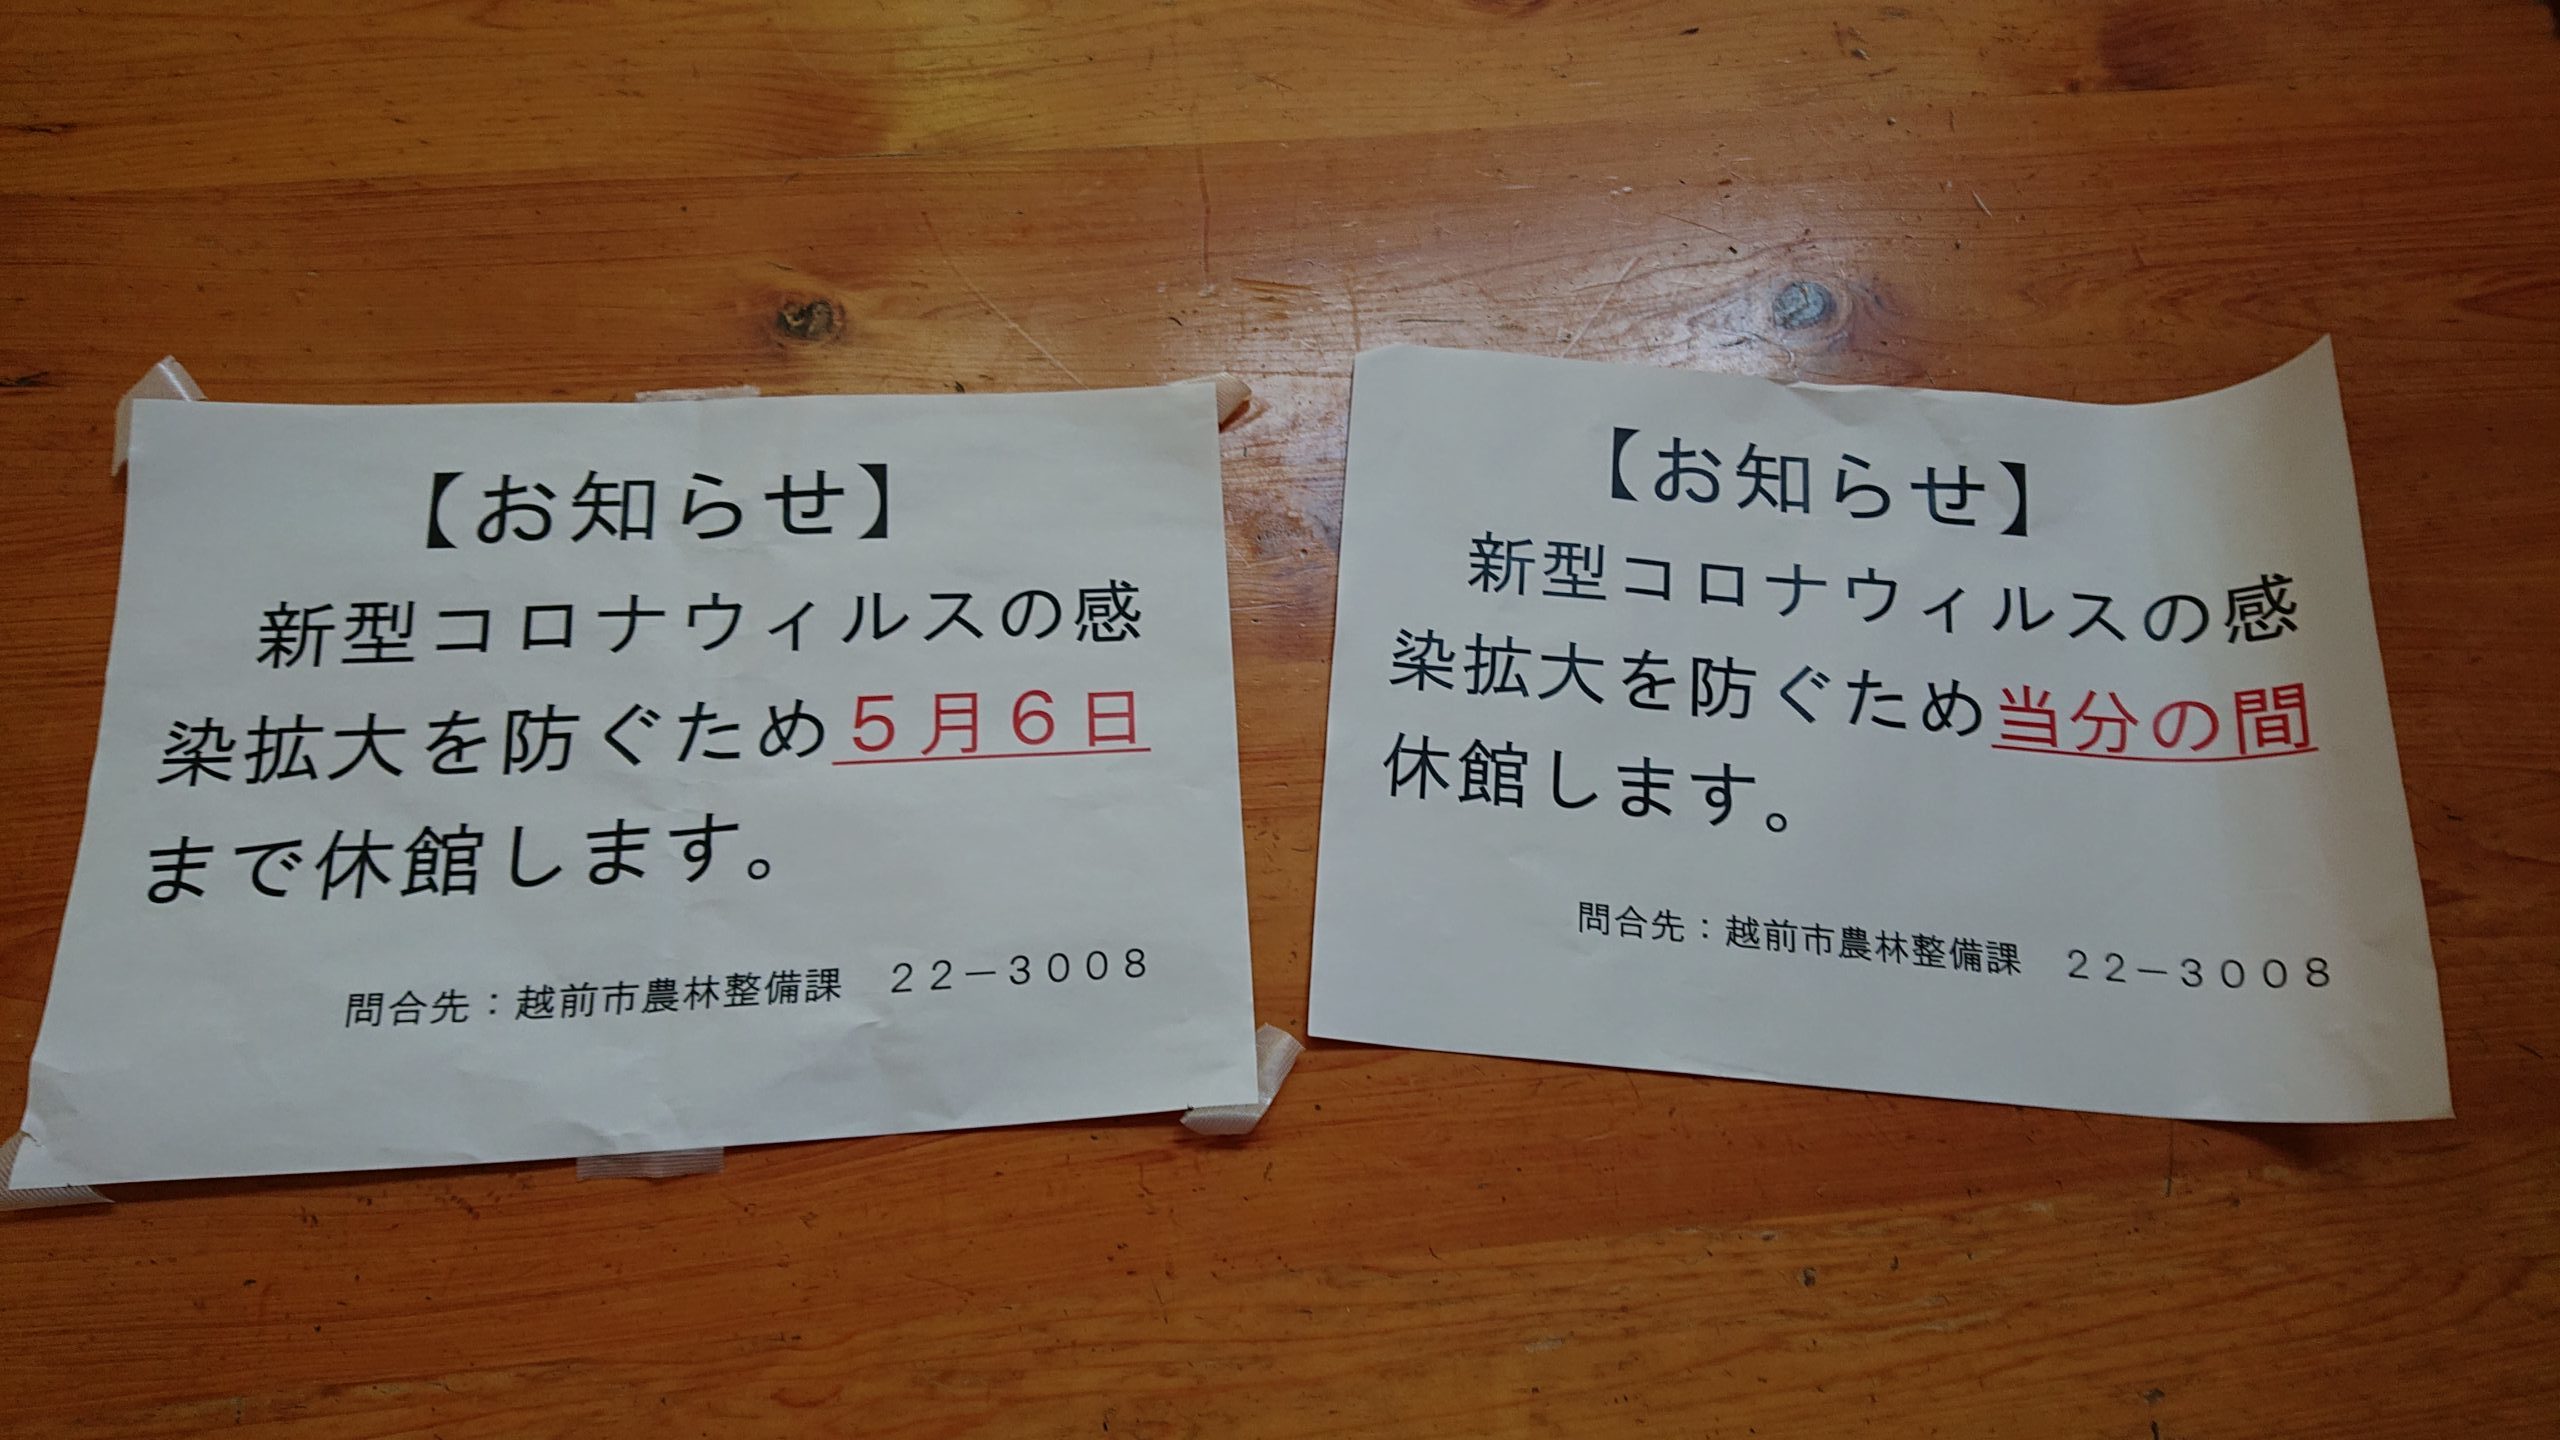 【お知らせ】
新型コロナウィルスの感
染拡大を防ぐため５月６日
まで休館します。
問合先：越前市農林整備課　２２－３００８
【お知らせ】
新型コロナウィルスの感
染拡大を防ぐため当分の間
休館します。
問合先：越前市農林整備課　２２－３００８